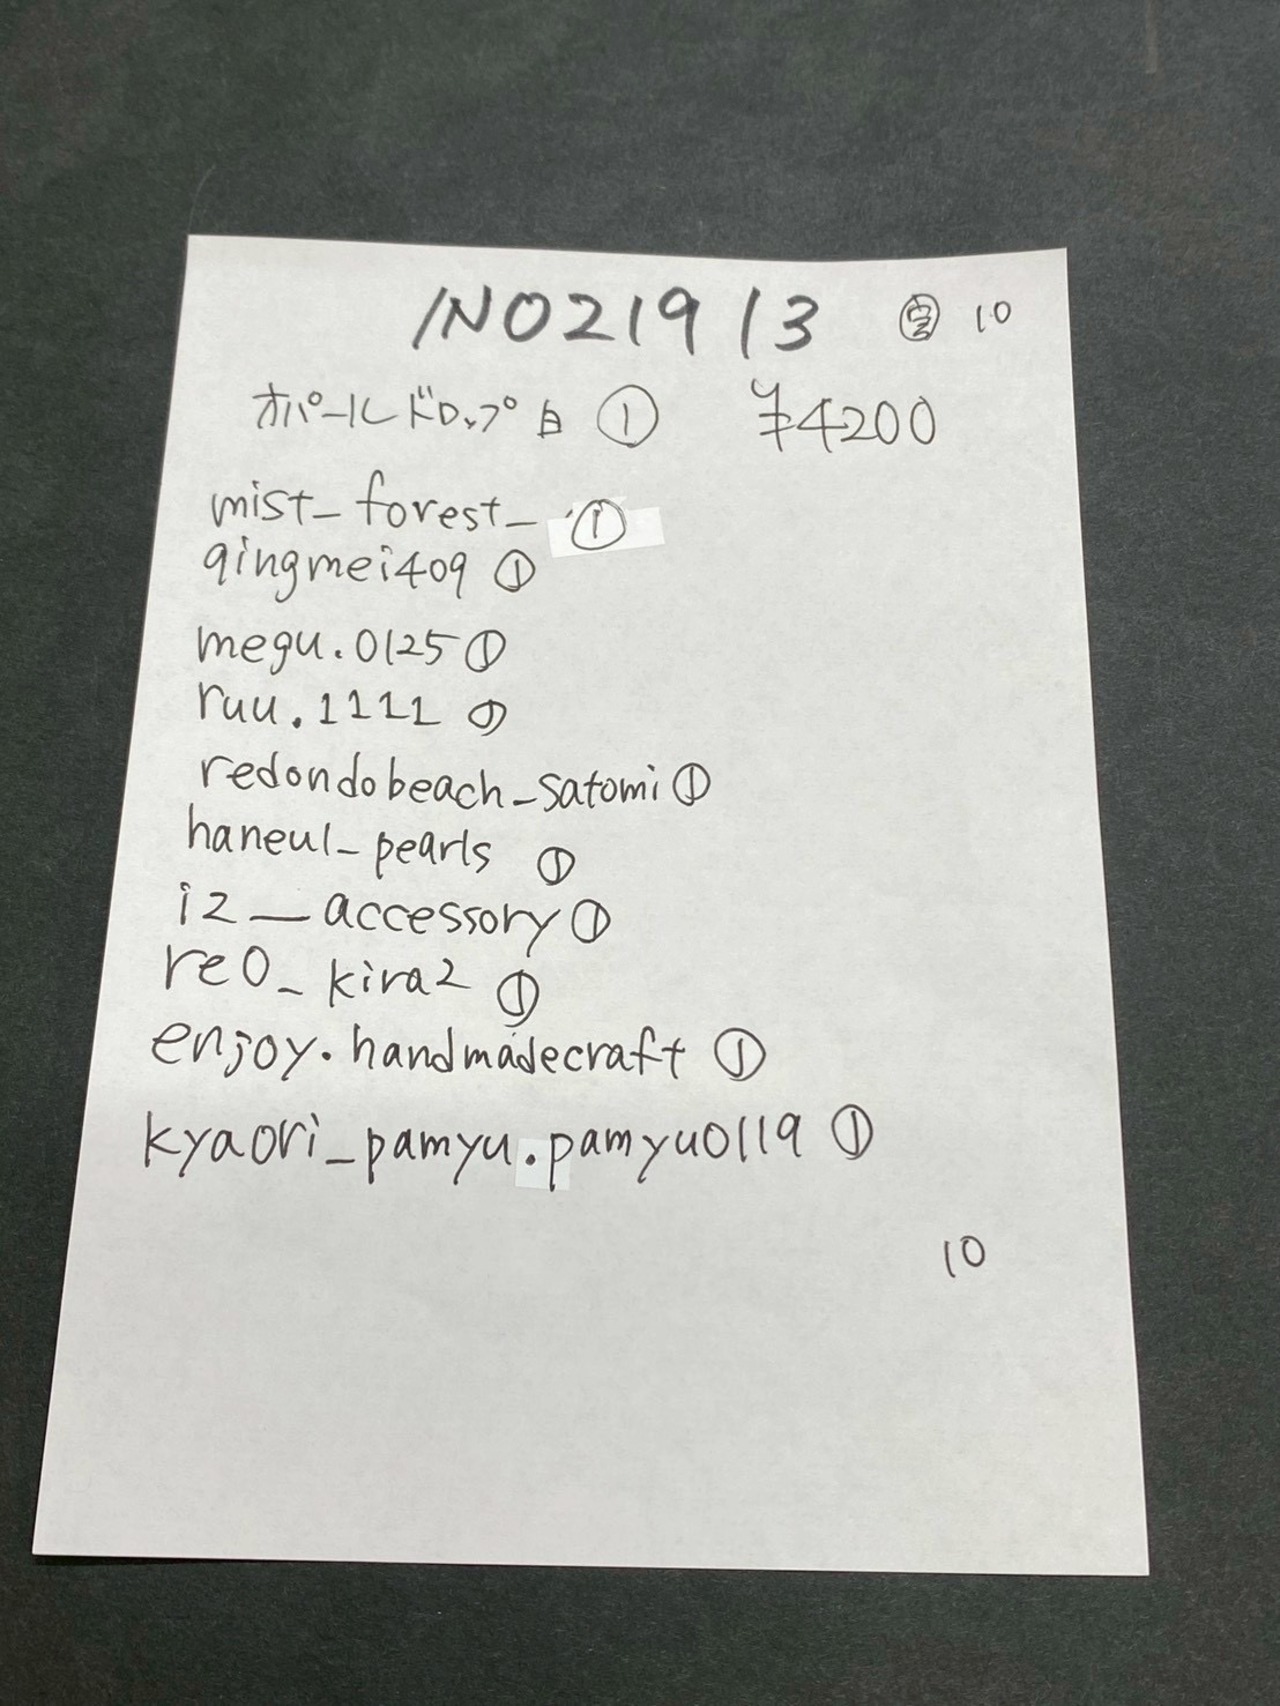 NO21913 10
オパールドロップ白 ① ¥4200
mist_forest_ ①
qingmei409 ①
megu.0125 ①
ruu.1111 ①
redondobeach_satomi ①
haneul_pearls ①
i2__accessory ①
re0_kira2 ①
enjoy.handmadecraft ①
kyaori_pamyu.pamyu0119 ①
10